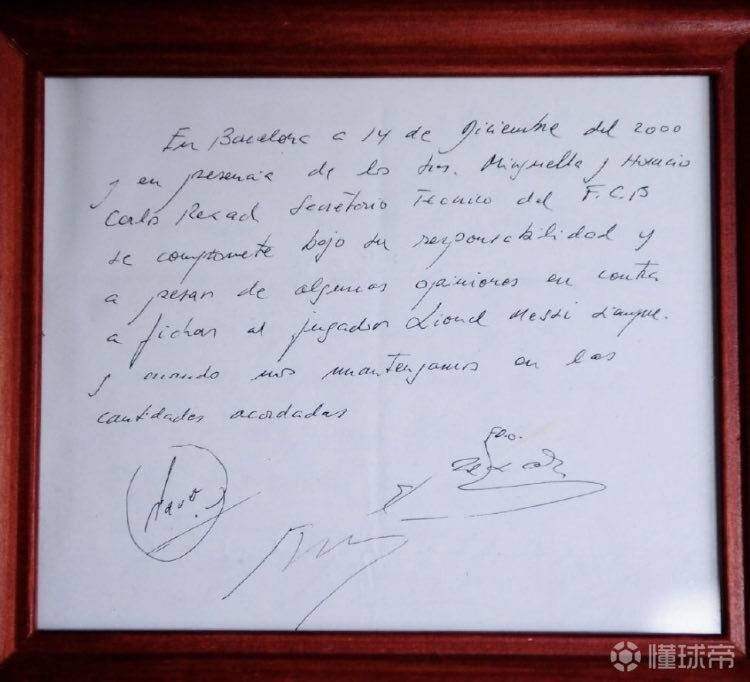 En Barcelona a 14 de Diciembre del 2000
y en presencia de los Sres. Minguella y Horacio
Carlos Rexach Secretario Tecnico del F.C.B
se compromete bajo su responsabilidad y
a pesar de algunas opiniones en contra
a fichar al jugador Lionel Messi siempre
y cuando nos mantengamos en las
cantidades acordadas
懂球帝